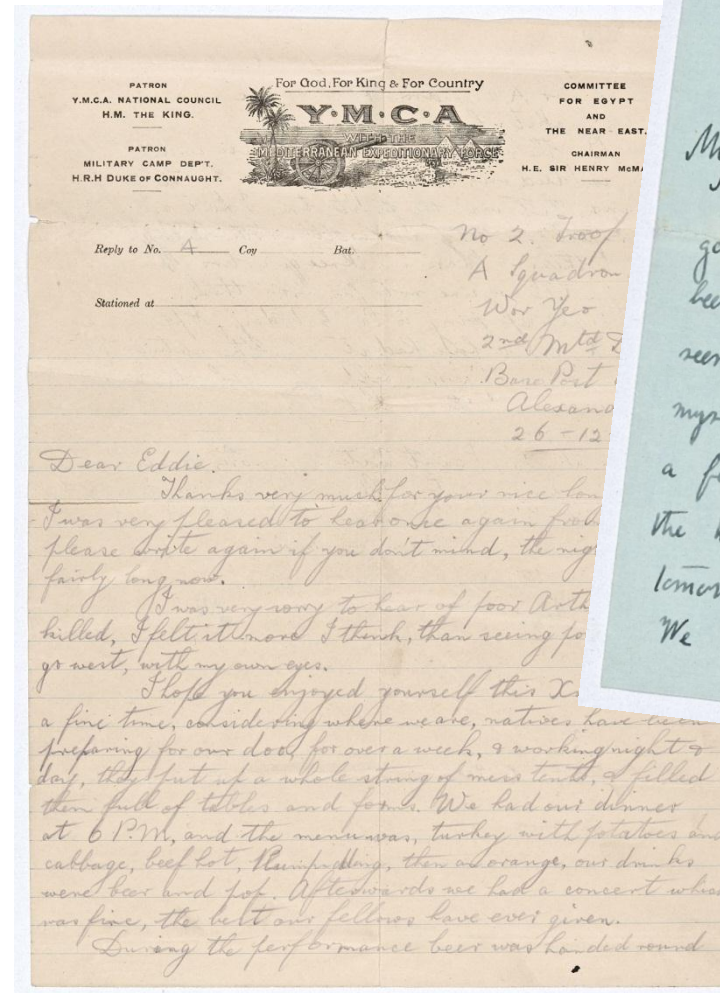 PATRON
Y.M.C.A. NATIONAL COUNCIL
H.M. THE KING.
PATRON
MILITARY CAMP DEP'T.
H.R.H DUKE OF CONNAUGHT.
For God, For King & For Country
Y·M·C·A
WITH THE
MEDITERRANEAN EXPEDITIONARY FORCE
COMMITTEE
FOR EGYPT
AND
THE NEAR EAST.
CHAIRMAN
H.E. SIR HENRY McMA
Reply to No. A Coy Bat.
Stationed at
No 2. Troop.
A Squadron
Wor Yeo
2nd Mtd
Base Post
Alexand
26-12
Dear Eddie.
Thanks very much for your nice
I was very pleased to hear once again
please write again if you don't mind, the nig
fairly long now.
I was very sorry to hear of poor Arth
killed, I felt it more I think, than seeing
go west, with my own eyes.
I hope you enjoyed yourself this
a fine time, considering where we are, natives have been
preparing for our doo, for over a week, & working night &
day, they put up a whole string of mess tents, & filled
them full of tables and forms. We had our dinner
at 6 P.M, and the menu was, turkey with potatoes and
cabbage, beef hot, Plumpudding, then an orange, our drinks
were beer and pop. Afterwards we had a concert which
was fine, the best our fellows have ever given.
During the performance beer was handed round
go
seen
myse
a
the
tomor
We